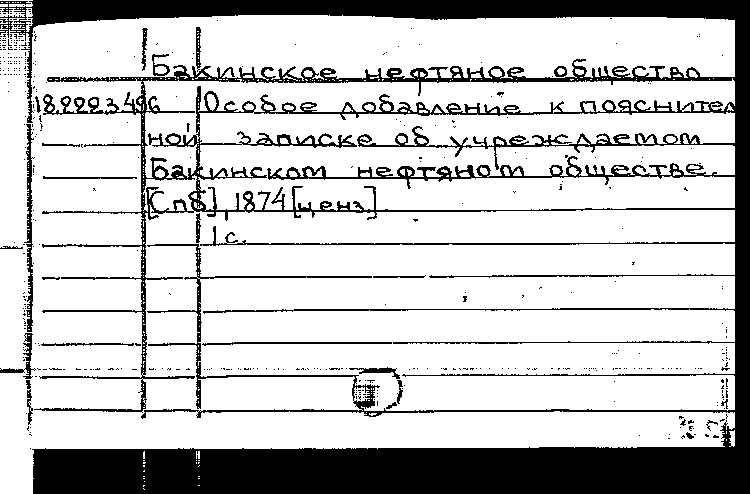 Бакинское нефтяное общество
18.222.3.496 Особое добавление к пояснител
ной записке об учреждаемом
Бакинском нефтяном обществе.
[Спб], 1874 [ценз]
1 с.